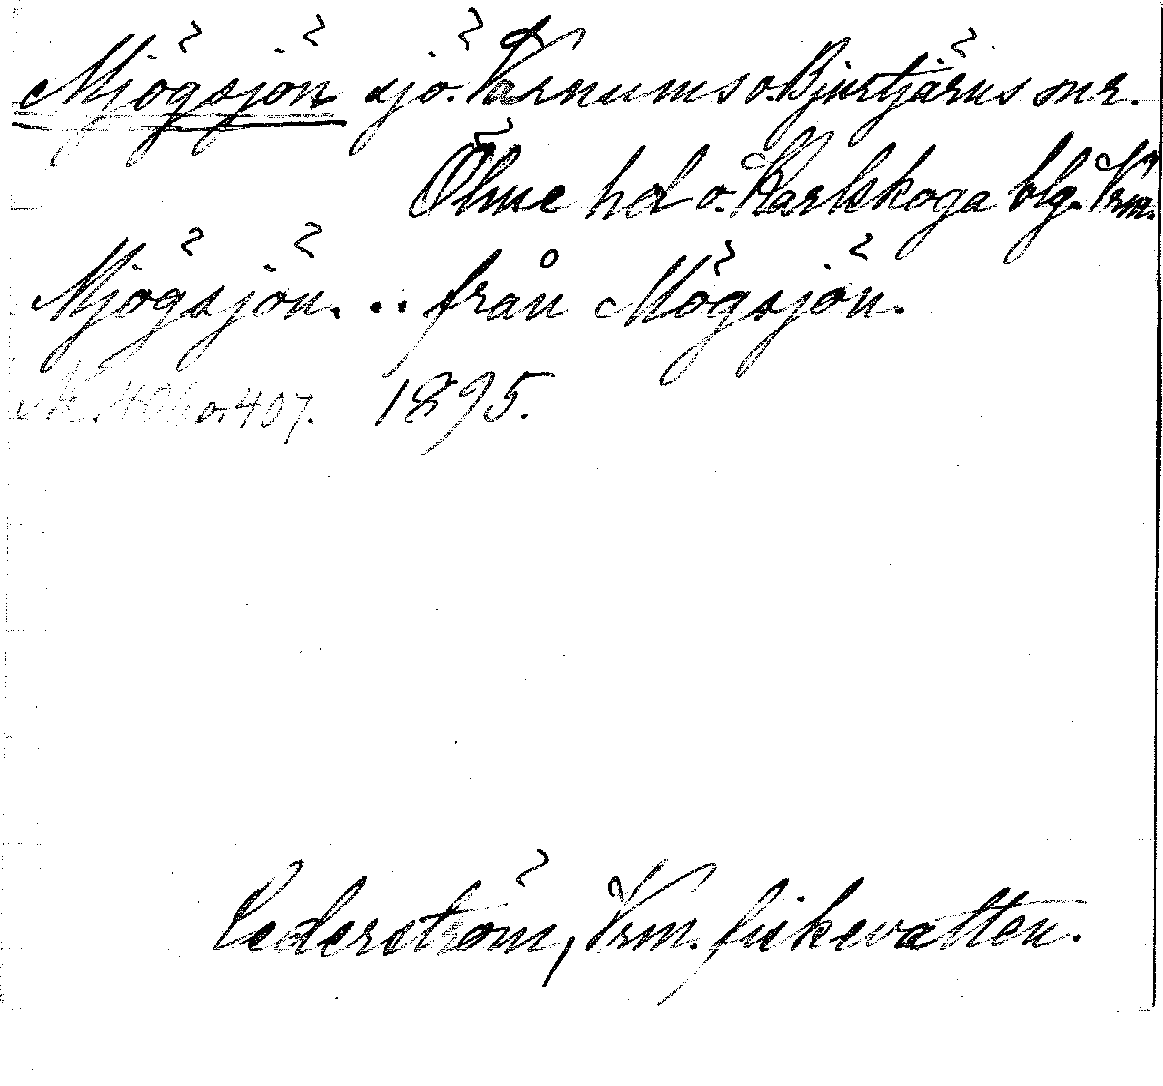 Mjögsjön sjö. Varnums o. Bjurtjärns snr.
Ölme hd o. Karlskoga blg. Vrm.
Mjögsjön. .. från Mögsjön.
sk. 406 o. 407. 1895.
Cederström, Vrm. fiskevatten.